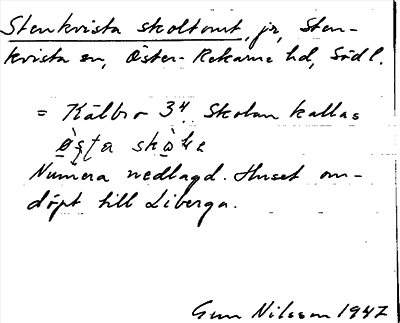 Stenkvista skoltomt, jr, Sten-
kvista sn, Öster-Rekarne hd, Södl.
= Kälbro 3⁴. Skolan kallas
östa skola
Numera nedlagd. Huset om-
döpt till Liberga.
Gun Nilsson 1947